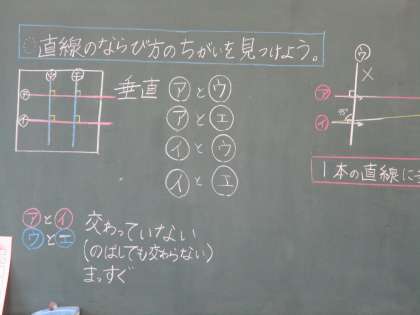 直線のならび方のちがいを見つけよう。
ウ エ
ア
イ
垂直 アとウ
アとエ
イとウ
イとエ
アとイ 交わっていない
ウとエ (のばしても交わらない)
まっすぐ
ウ
ア
イ
1本の直線に